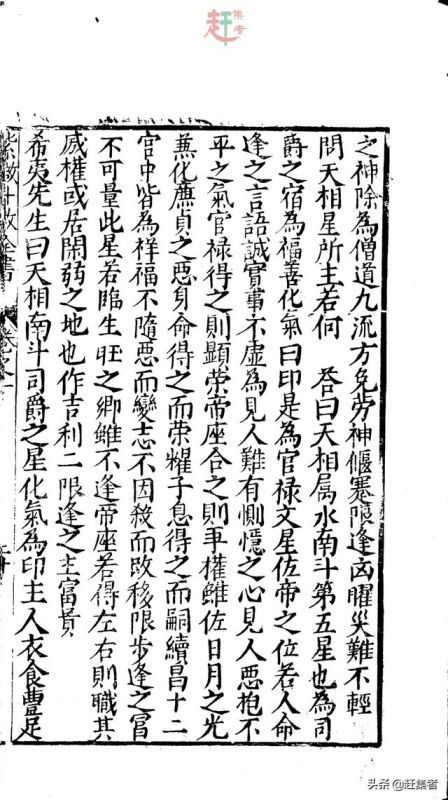 赶
集者
之神除為僧道九流方免劳神偃蹇限逢凶曜災難不輕
問天相星所主若何 答曰天相属水南斗第五星也為司
爵之宿為福善化氣曰印是為官禄文星佐帝之位若人命
逢之言語誠實事不虛為見人難有惻憶之心見人惡抱不
平之氣官禄得之則顕荣帝座合之則爭權雖佐日月之光
兼化廉貞之惡身命得之而荣耀子息得之而嗣續昌十二
宫中皆為祥福不隨惡而變志不因殺而改移限步逢之富
不可量此星若臨生旺之鄉雖不逢帝座若得左右則職其
威權或居閑弱之地也作吉利二限逢之主富貴
希夷先生曰天相南斗司爵之星化氣為印主人衣食豊足
头条 @赶集者